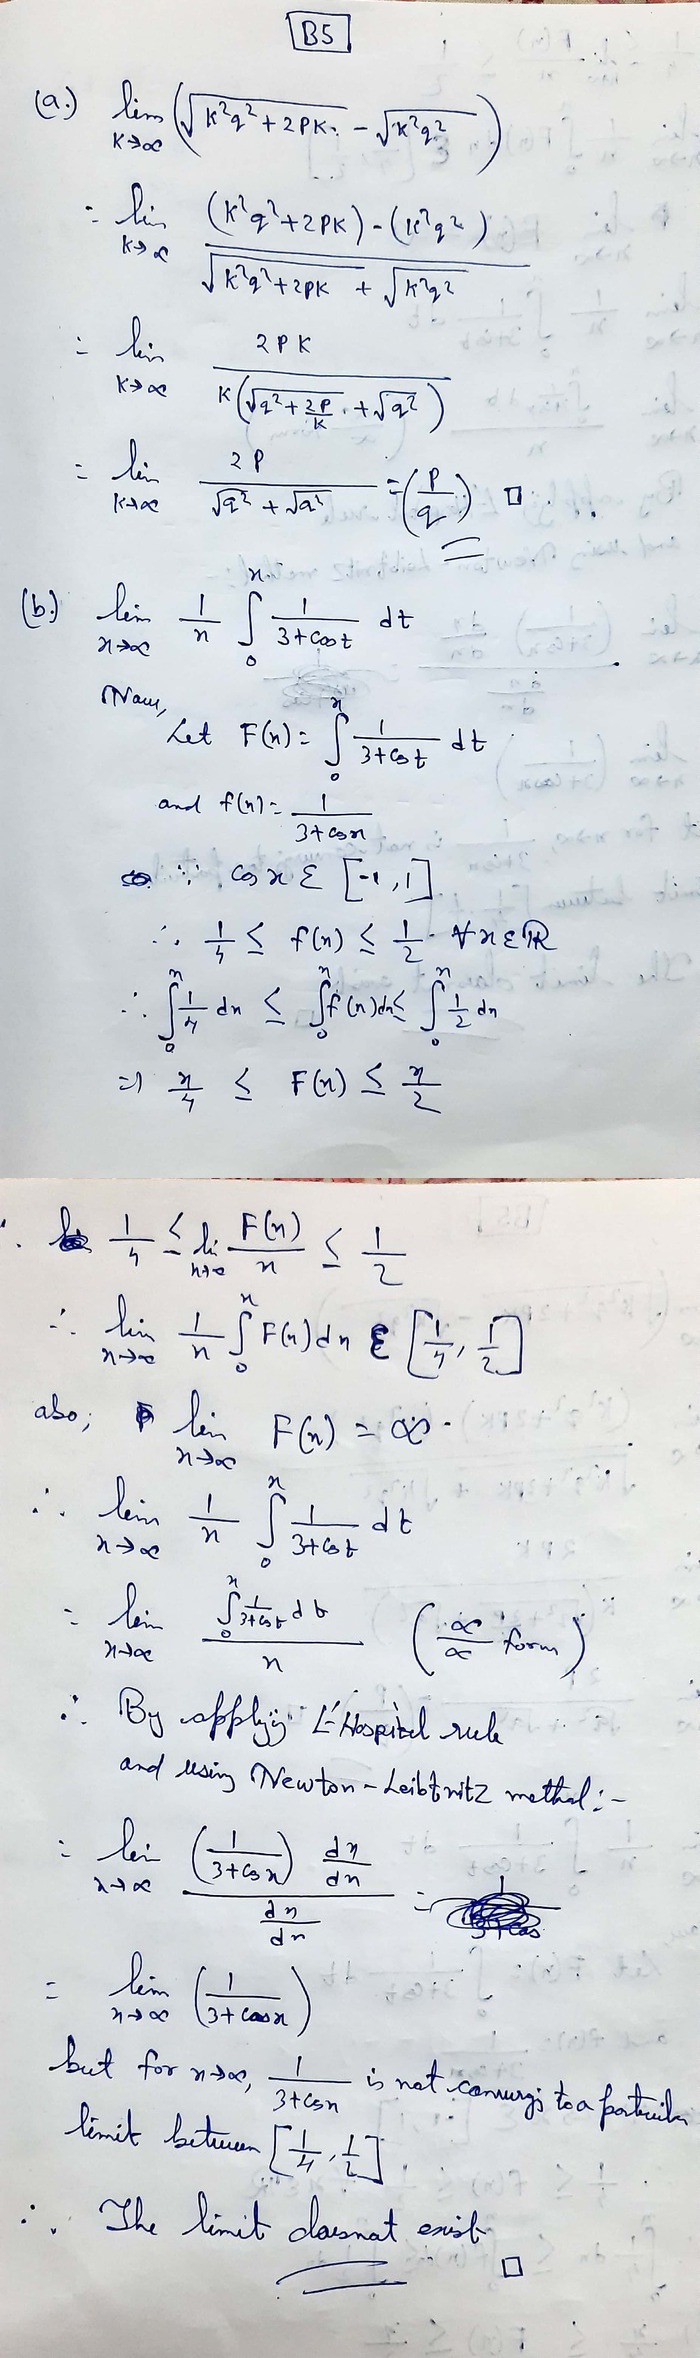 B5
(a.) lim K→∞ (√(K²q²+2PK) - √(K²q²))
= lim K→∞ ((K²q²+2PK) - (K²q²)) / (√(K²q²+2PK) + √(K²q²))
= lim K→∞ 2PK / (K(√(q²+2P/K) + √q²))
= lim K→∞ 2P / (√q² + √q²) = (P/q) □
(b.) lim x→∞ 1/x ∫₀ˣ 1/(3+cost) dt
Now,
Let F(x) = ∫₀ˣ 1/(3+cost) dt
and f(x) = 1/(3+cosx)
∵ cosx ε [-1,1]
∴ 1/4 ≤ f(x) ≤ 1/2 ∀xεℝ
∴ ∫₀ˣ 1/4 dx ≤ ∫₀ˣ f(x)dx ≤ ∫₀ˣ 1/2 dx
⇒ x/4 ≤ F(x) ≤ x/2
∴ 1/4 ≤ lim x→∞ F(x)/x ≤ 1/2
∴ lim x→∞ 1/x ∫₀ˣ F(x)dx ε [1/4, 1/2]
also, lim x→∞ F(x) = ∞
∴ lim x→∞ 1/x ∫₀ˣ 1/(3+cost) dt
= lim x→∞ (∫₀ˣ 1/(3+cost) dt) / x (∞/∞ form)
∴ By applyig L'Hospital rule
and using Newton-Leibtnitz method:-
= lim x→∞ ((1/(3+cosx)) dx/dx) / (dx/dx) =
= lim x→∞ (1/(3+cosx))
but for x→∞, 1/(3+cosx) is not convergs to a particular
limit between [1/4, 1/2]
∴ The limit doesnot exist □